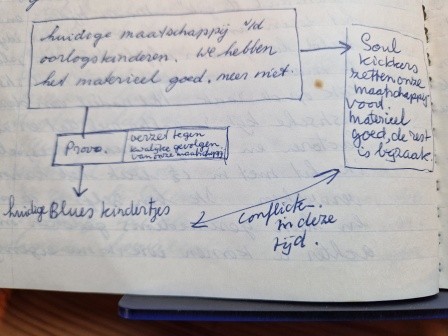 huidige maatschappij v/d
oorlogskinderen. We hebben
het materieel goed, meer niet.
Soul
kickkers
zetten onze
maatschappij
voort.
materieel
goed, de rest
is bijzaak.
Provo.
verzet tegen
kwalijke gevolgen
van onze maatschappij
huidige Blues kindertjes
conflict
in deze
tijd.